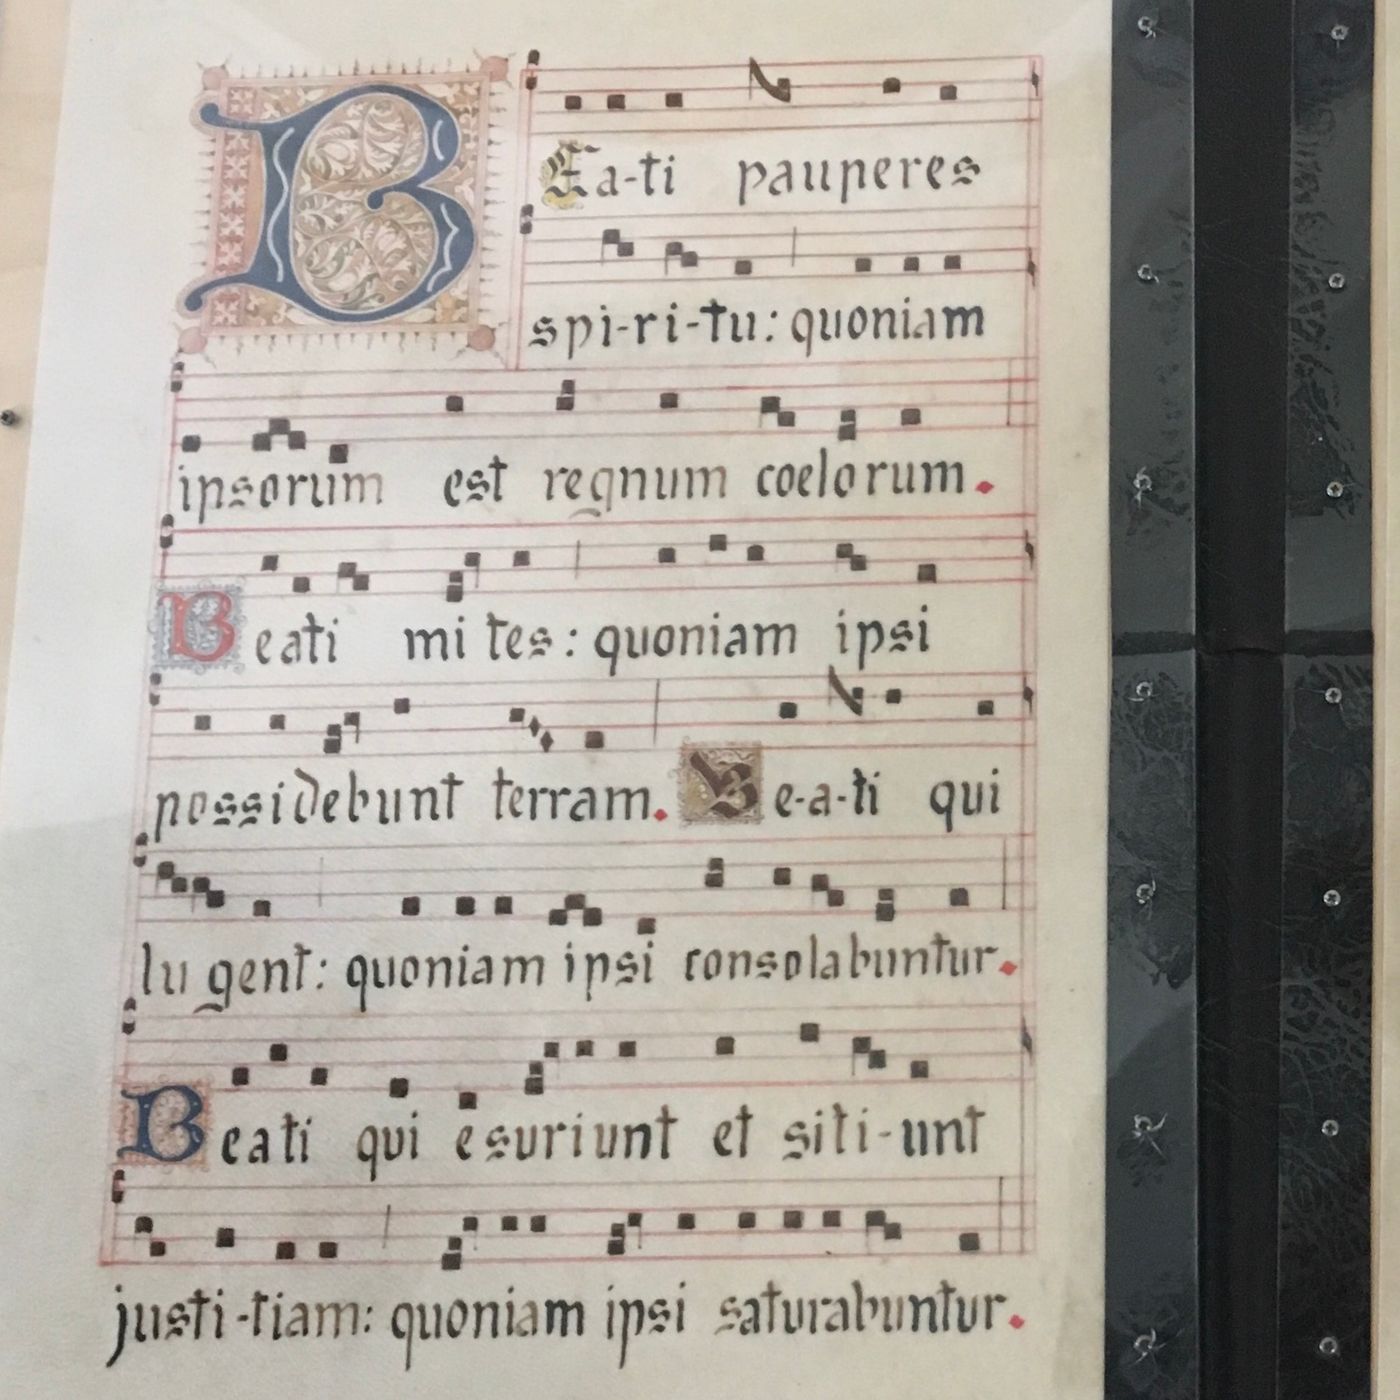 BEa-ti pauperes
spi-ri-tu: quoniam
ipsorum est regnum coelorum.
Beati mi tes: quoniam ipsi
possidebunt terram. Be-a-ti qui
lu gent: quoniam ipsi consolabuntur.
Beati qui esuriunt et siti-unt
justi-tiam: quoniam ipsi saturabuntur.